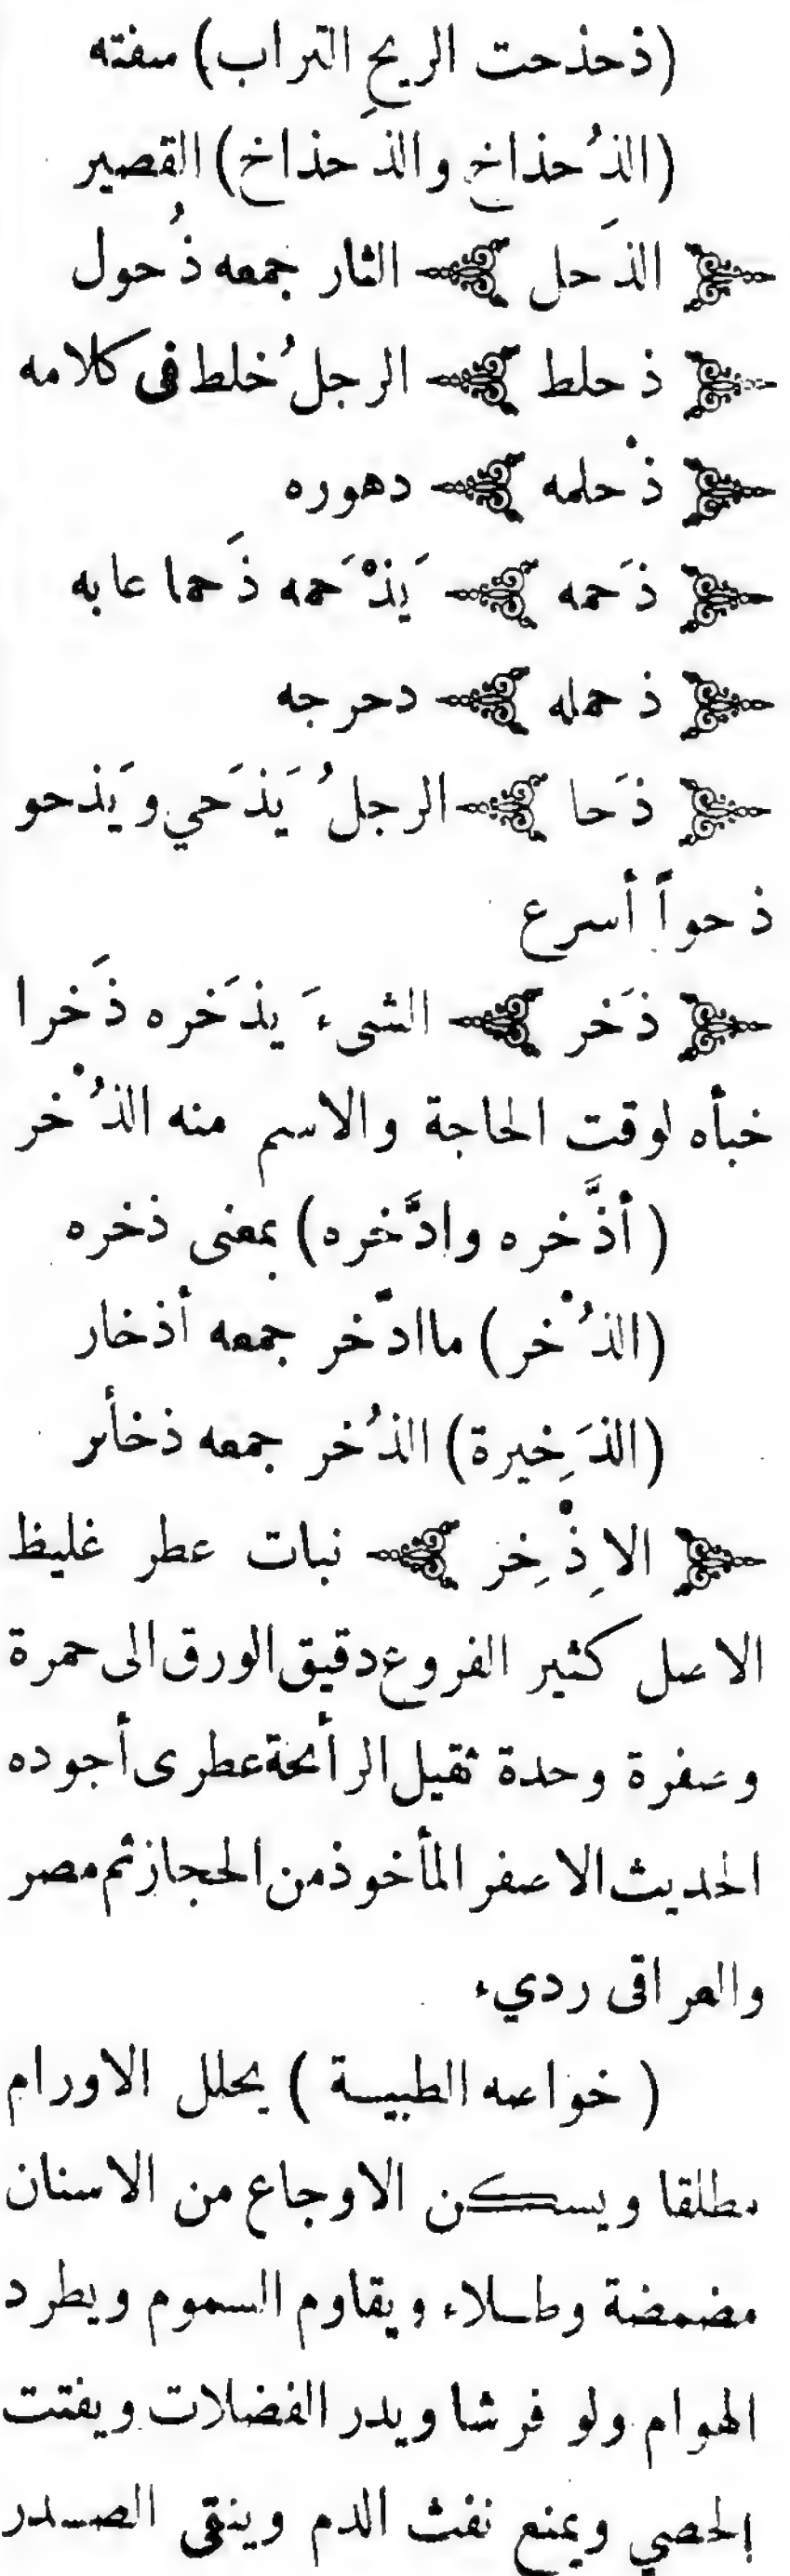 (ذحذحت الريحِ التراب) سفته
(الذُحذاخ والذَحذاخ) القصير
﴿ الذَحل ﴾ الثار جمعه ذُحول
﴿ ذحلط ﴾ الرجلُ خلط فى كلامه
﴿ ذْحلمه ﴾ دهوره
﴿ ذَحمه ﴾ يَذْحَمه ذَحما عابه
﴿ ذحمله ﴾ دحرجه
﴿ ذَحا ﴾ الرجلُ يَذحَي ويَذحو
ذحواً أسرع
﴿ ذَخر ﴾ الشىءَ يذَخره ذَخرا
خبأه لوقت الحاجة والاسم منه الذُخْر
(أذَّخره وادَّخره) بمعنى ذخره
(الذُخْر) ماادَّخر جمعه أذخار
(الذَخِيرة) الذُخر جمعه ذخأر
﴿ الاِذْخِر ﴾ نبات عطر غليظ
الاصل كثير الفروع دقيق الورق الى حمرة
وصفرة وحدة ثقيل الرأئحة عطرى أجوده
الحديث الاصفر المأخوذ من الحجاز ثم مصر
والعراقى رديء
(خواصه الطبيـة) يحلل الاورام
مطلقا ويسكن الاوجاع من الاسنان
مضمضة وطـلاء ويقاوم السموم ويطرد
الهوام ولو فرشا ويدر الفضلات ويفتت
الحصي ويمنع نفث الدم وينقى الصـدر